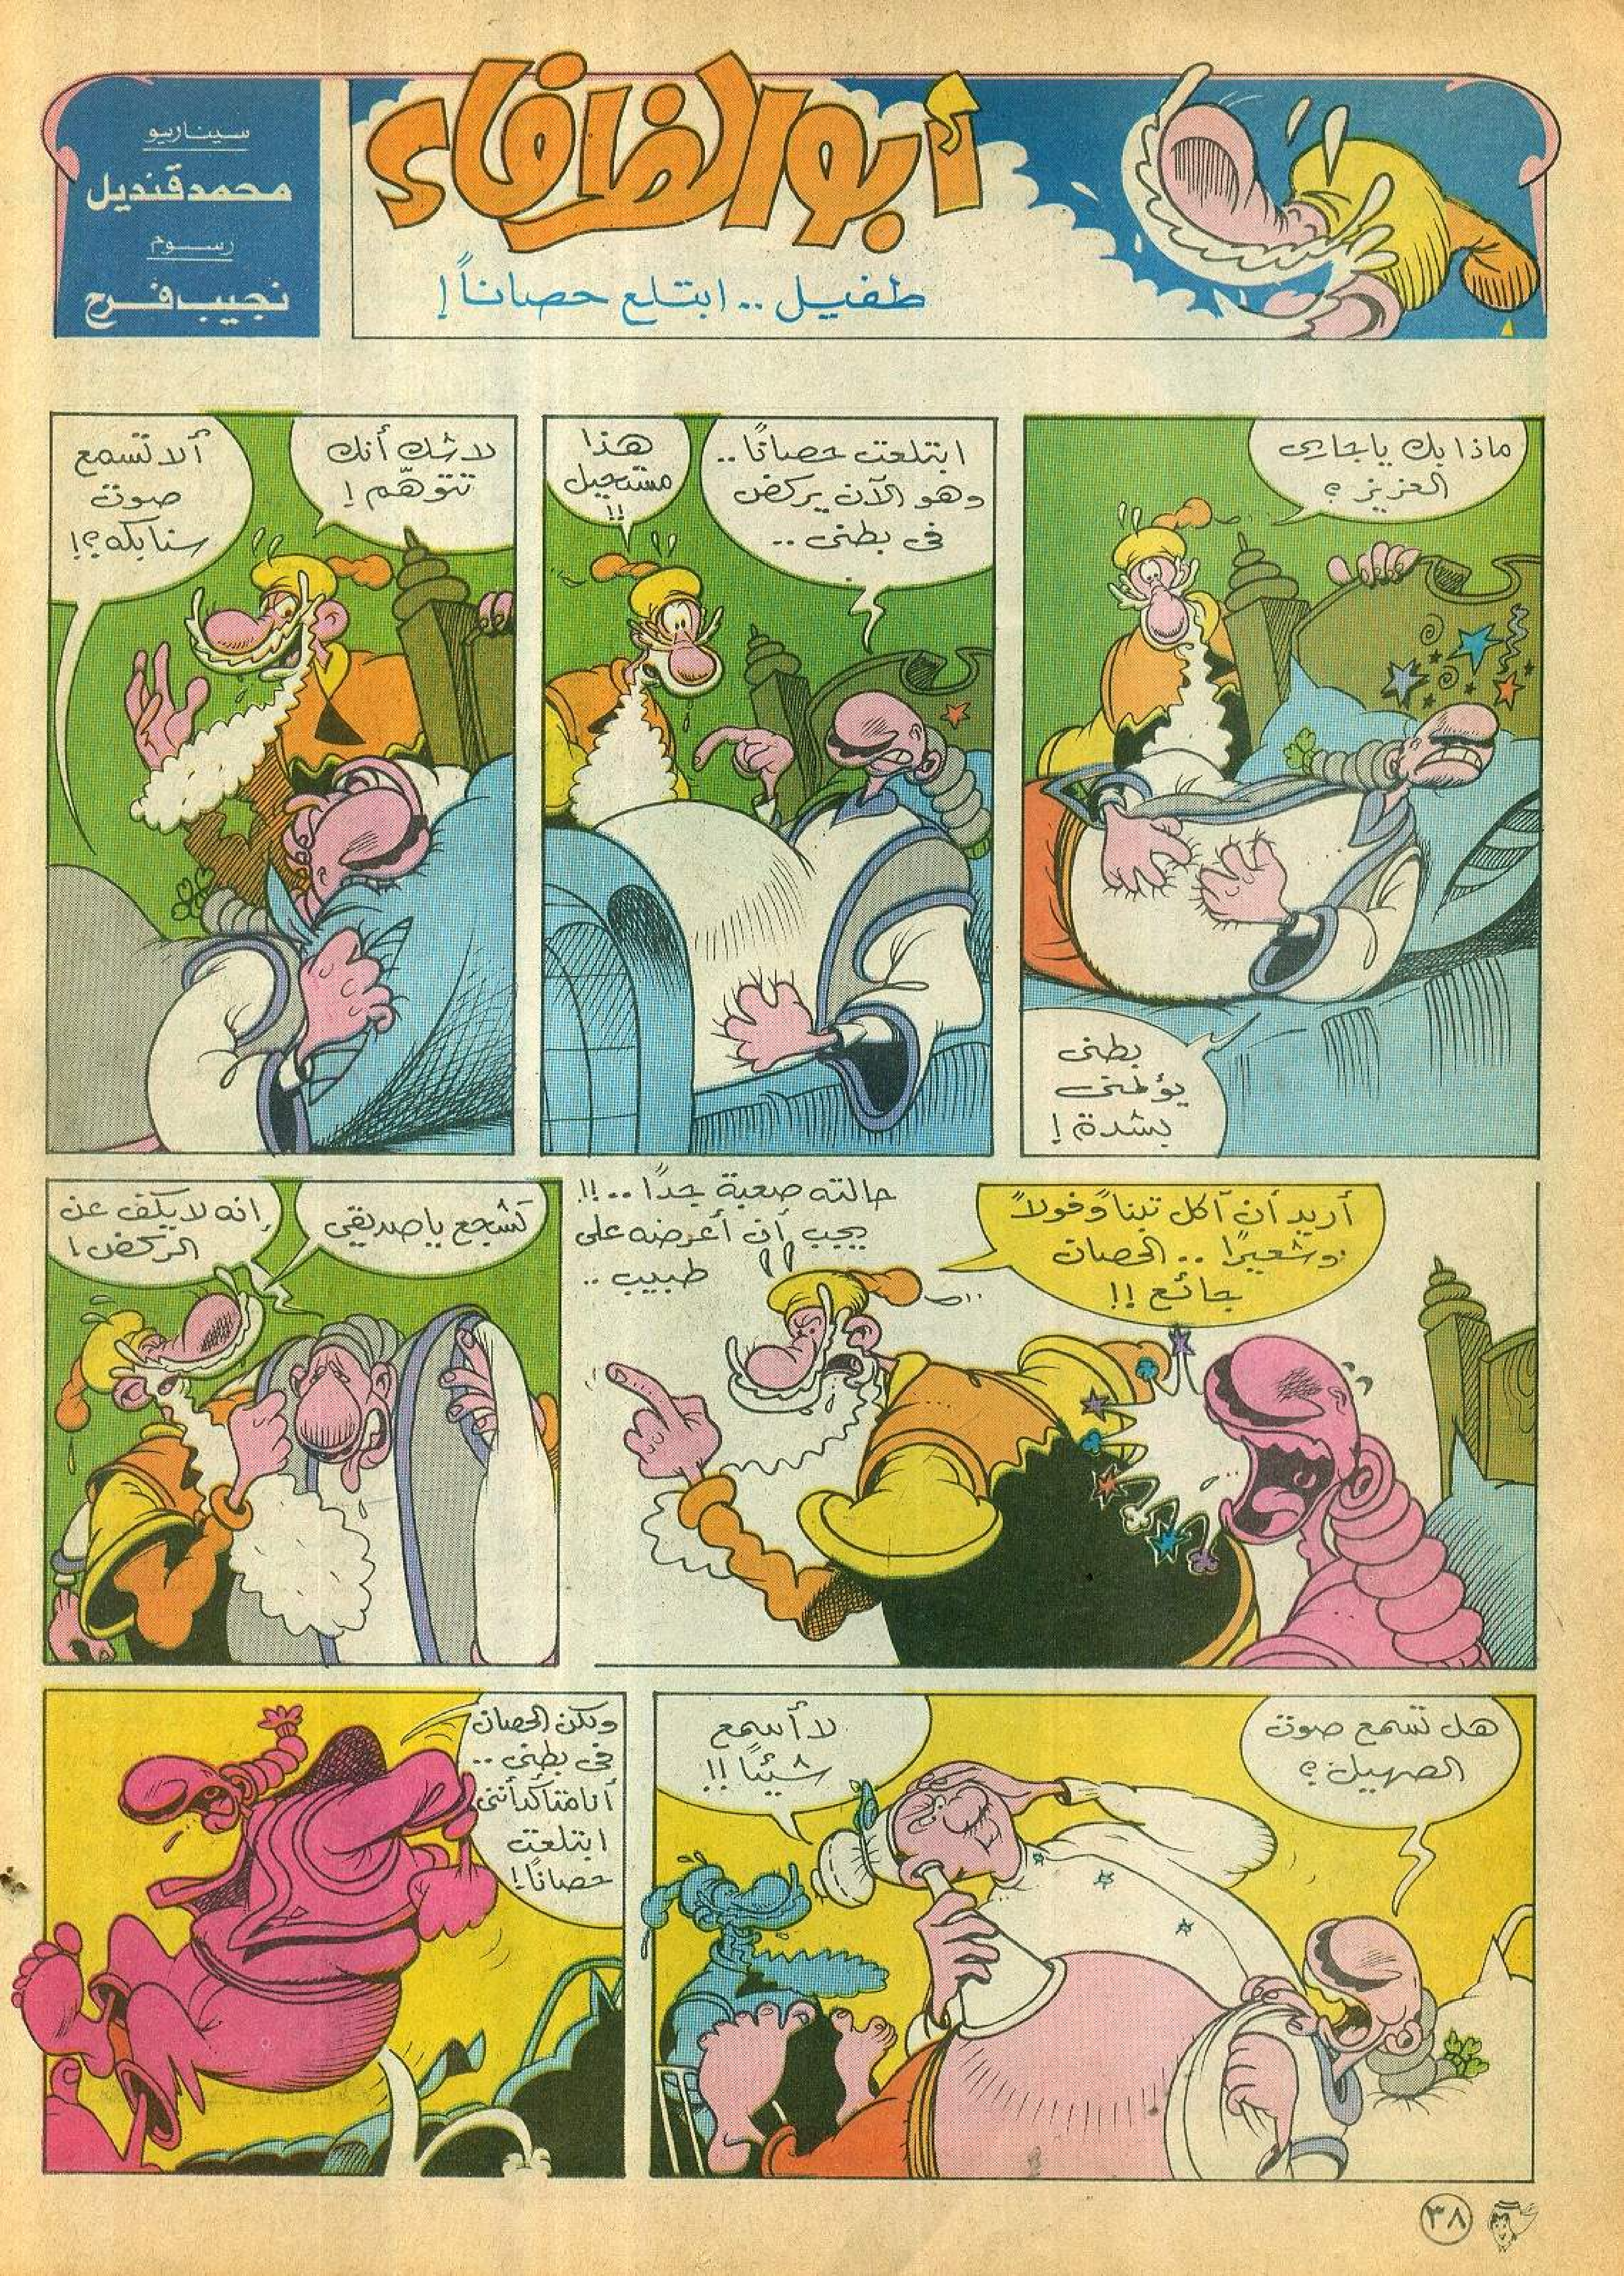 أبو الظرفاء
طفيل .. ابتلع حصاناً !
سيناريو
محمد قنديل
رسوم
نجيب فرح
ماذا بك يا جاري
العزيز ؟
بطني
يؤلمني
بشدة !
ابتلعت حصانًا ..
وهو الآن يركض
في بطني ..
هذا
مستحيل
!!
لا شك أنك
تتوهّم !
ألا تسمع
صوت
سنابكه ؟!
أريد أن آكل تبناً وفولاً
وشعيرًا .. الحصان
جائع !!
حالته صعبة جداً .. !!
يجب أن أعرضه على
طبيب ..
تشجع يا صديقي
إنه لا يكف عن
الركض !
هل تسمع صوت
الصهيل ؟
لا أسمع
شيئًا !!
ولكن الحصان
في بطني ..
أنا متأكد أنني
ابتلعت
حصانًا !
٣٨